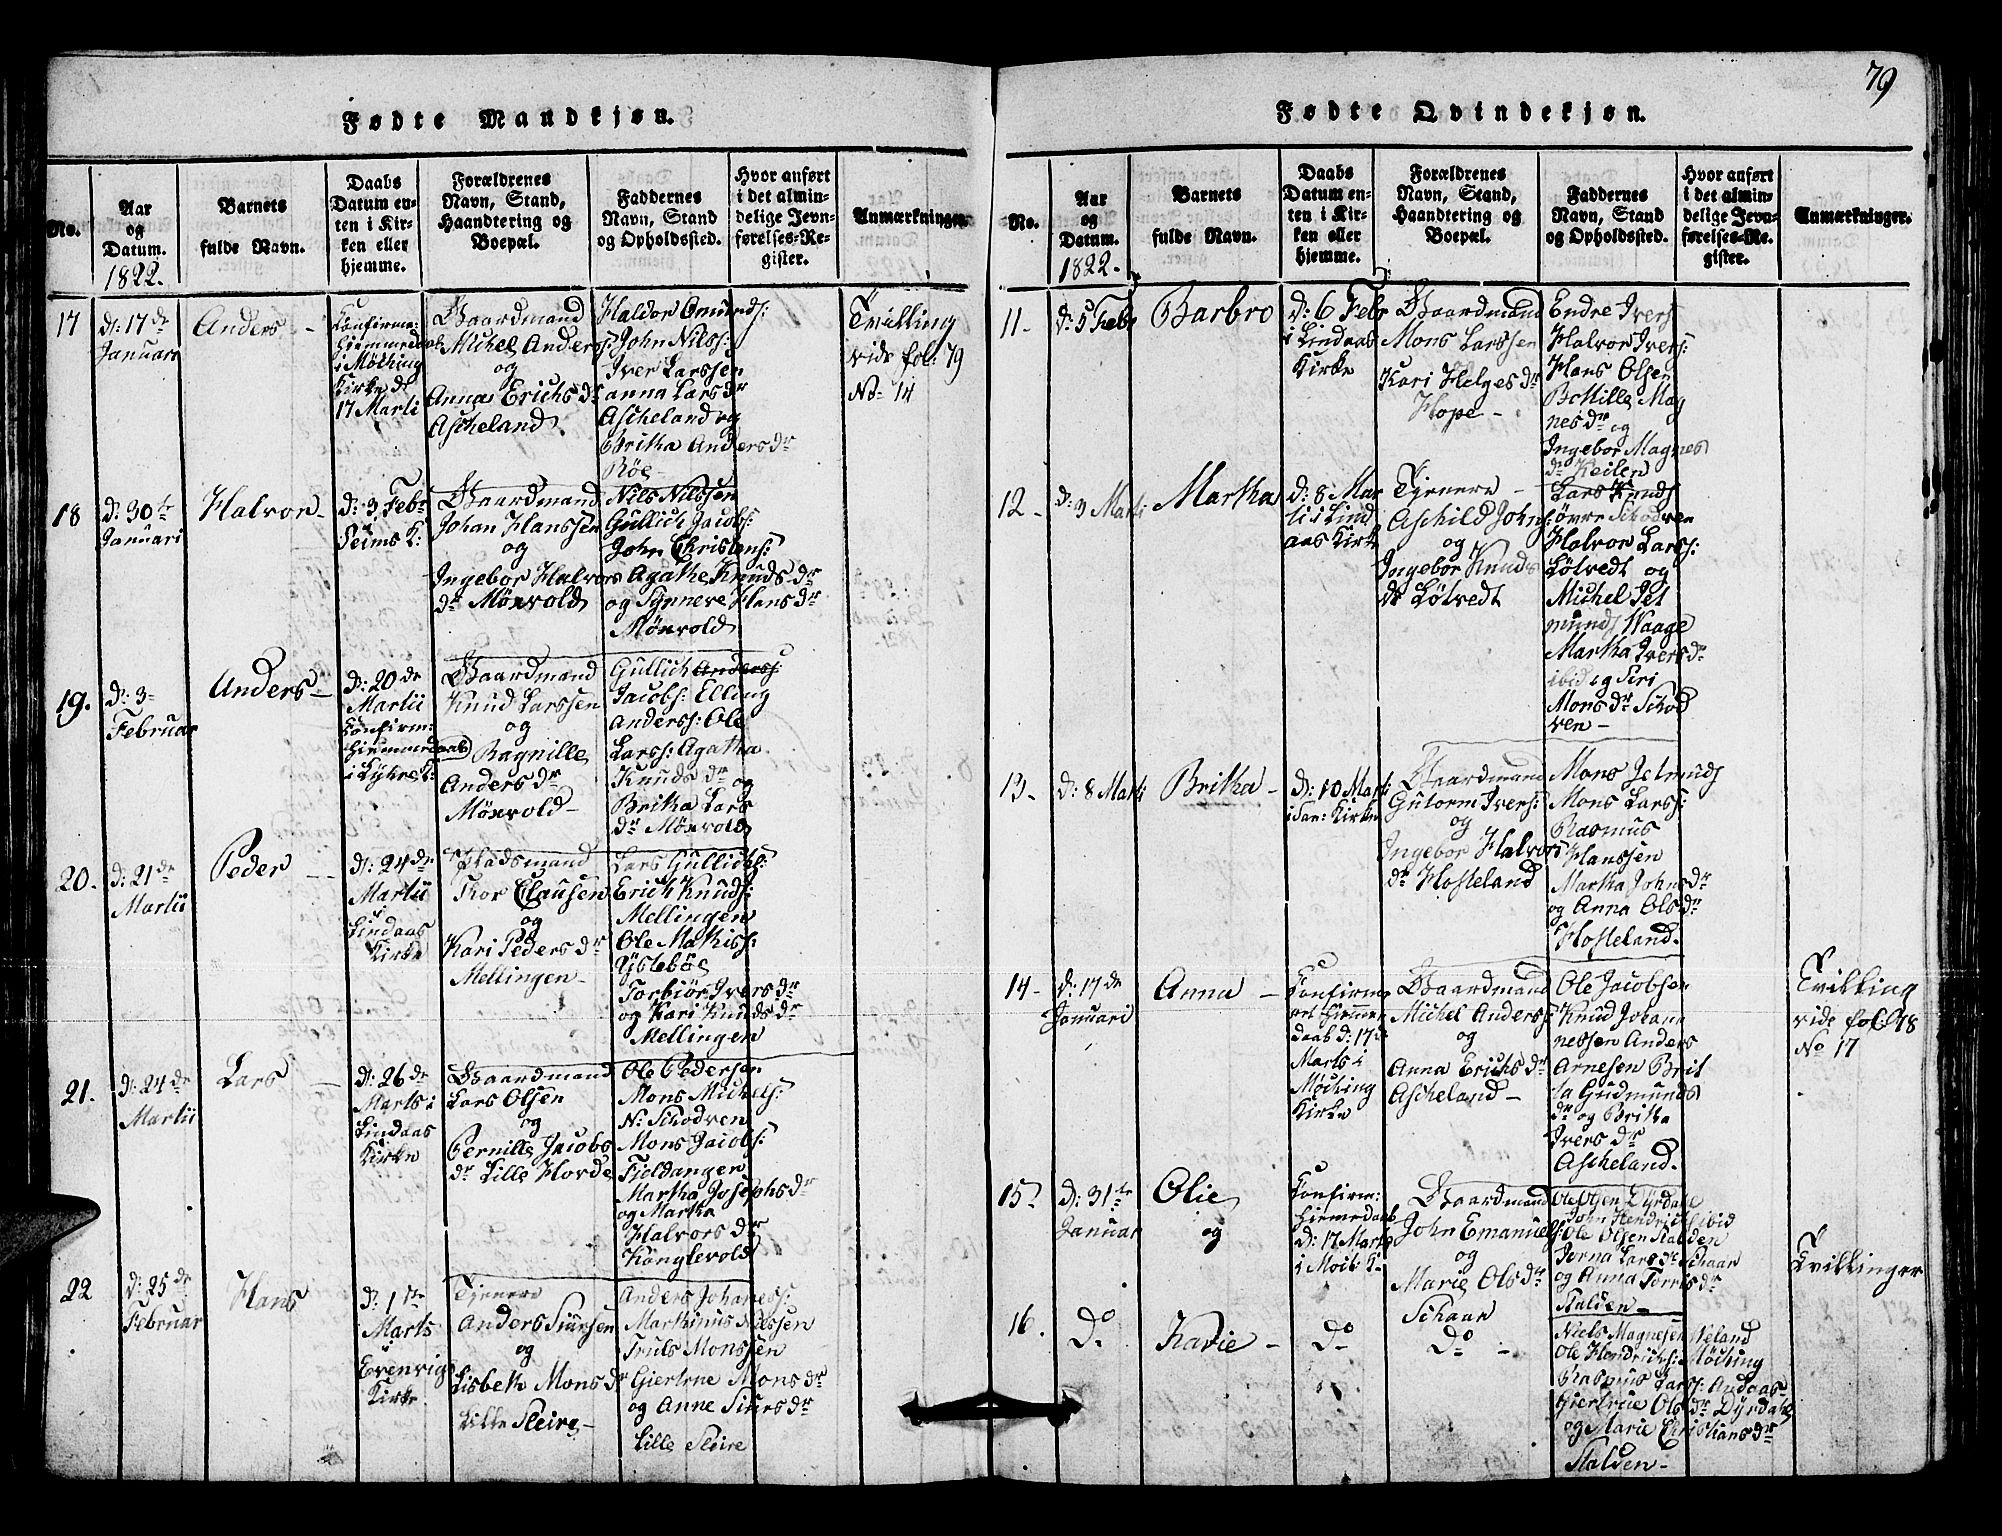 79
Fødte Mandkjøn.
No.
Aar
og
Datum.
1822.
Barnets
fulde Navn.
Daabs
Datum en-
ten i Kir-
ken eller
hjemme.
Forældrenes
Navn, Stand,
Haandtering og
Boepæl.
Faddernes
Navn, Stand
og Opholdssted.
Hvor anført
i det almin-
delige Jevn-
førelses-Re-
gister.
Anmærkninger.
17
d: 17de
Januari
Anders -
Confirme:
Hiemmedaab
i Möching
Kirke d:
17 Marti
Gaardmand
Michel Anders:
og
Anna Erichs dr
Ascheland
Haldor Omunds:
John Nilss:
Iver Larssen
anna Lars dr
Ascheland og
Britha Anders dr
Röe
Tvilling
vide fol: 79
No 14
18
d: 30te
Januari
Halvor -
d: 3 Febr
Seims K:
Gaardmand
Johan Hanssen
og
Ingebor Halvors
dr Mönvold
Nils Nilssen
Gullich Jacobs:
John Christens:
Agathe Knuds dr
og Synneve Hans dr
Mönvold
19.
d: 3
Februar
Anders -
d: 20de
Martii
Confirm:
Hiemmedaab
i Lykre K:
Gaardmand
Knud Larssen
og
Ragnille
Anders dr
Mönvold -
Gullich Anderss:
Jacobs: Elling
Anderss: Ole
Larss: Agatha
Knuds dr og
Britha Lars
dr Mönvold
20.
d: 21de
Martii
Peder -
d: 24de
Martii
i
Lindaas
Kirke
Pladsmand
Thor Clausen
og
Kari Peders dr
Mellingen -
Lars Gullichs:
Erich Knuds:
Mellingen
Ole Mathiss:
Ysteböe
Torbiör Ivers dr
og Kari Knuds dr
Mellingen
21.
d: 24de
Martii
Lars -
d: 26de
Marts i
Lindaas
Kirke
Gaardmand
Lars Olsen
og
Pernille Jacobs
dr Lille Horde
Ole Pedersen
Mons Michels:
N: Schodven
Mons Jacobs:
Fieldangen
Martha Josephs dr
og Martha
Halvors dr
Konglevold
22
d: 25de
Februar
Hans
d: 1te
Marts
i
Evenvig
Kirke
Tjenere
Anders Siursen
og
Lisbeth Mons dr
Lille Sleire -
Anders Johaness:
Marthinus Nilssen
Truls Monssen
Giertrue Mons dr
og Anne Siurs dr
Lille Sleire
Fødte Qvindekjøn.
No.
Aar
og
Datum.
1822.
Barnets
fulde Navn.
Daabs
Datum en-
ten i Kir-
ken eller
hjemme.
Forældrenes
Navn, Stand,
Haandtering og
Boepæl.
Faddernes
Navn, Stand
og Opholdssted.
Hvor anført
i det almin-
delige Jevn-
førelses-Re-
gister.
Anmærkninger.
11 -
d: 5 Febr
Barbro
d: 6 Febr
i Lindaas
Kirke
Gaardmand
Mons Larssen
Kari Helges dr
Hope -
Endre Ivers
Halvor Ivers:
Hans Olsen
Bothille Mag
nes dr og
Ingebor Magnes
dr Keilen
12 -
d: 3 Marti
Martha
d: 8 Mar
ti i Lind
aas Kirke
Tjenere -
Aschild Johns:
og
Ingebor Knuds
dr Lötvedt
Lars Knuds
övre Schodven
Halvor Larss:
Lötvedt og
Michel Jet
munds Waage
Martha Ivers dr
ibid og Siri
Mons dr Schod
ven -
13 -
d: 8 Marti
Britha -
d: 10 Marti
i dar: Kirke
Gaardmand
Gutorm Ivers:
og
Ingebor Halvors
dr Hosteland
Mons Jetmunds
Mons Larss:
Rasmus
Hanssen
Martha Johns dr
og Anna Ols dr
Hosteland.
14 -
d: 17de
Januari
Anna -
Confirme
ret Hiemme
daab d: 17de
Marts i
Möching
Kirke
Gaardmand
Michel Anders:
og
Anna Erichs dr
Ascheland -
Ole Jacobsen
Knud Johan
nessen Anders
Arnesen Brit
ta Gudmunds
dr og Britha
Ivers dr
Ascheland.
Tvilling
vide fol: 78
No 17
15
d: 31te
Januar
Olie
og
Confirm:
Hiemedaab
d: 17 Marts
i Möik K:
Gaardmand
John Emanuels:
og
Marie Ols dr
Schaar
Ole Olsen Dyrdale
John Hendrichs: ibid
Ole Olsen Stalden
Jerna Lars dr Schaar
og Anna Torris dr
Stalden -
Tvillinger
16.
Do
Karie -
Do
Do -
Niels Magnesen Neland
Ole Hendrichs: Möching
Rasmus Larss: Andaas
Giertrue Ols dr Dyrdahl
og Marie Christians dr
Stalden -